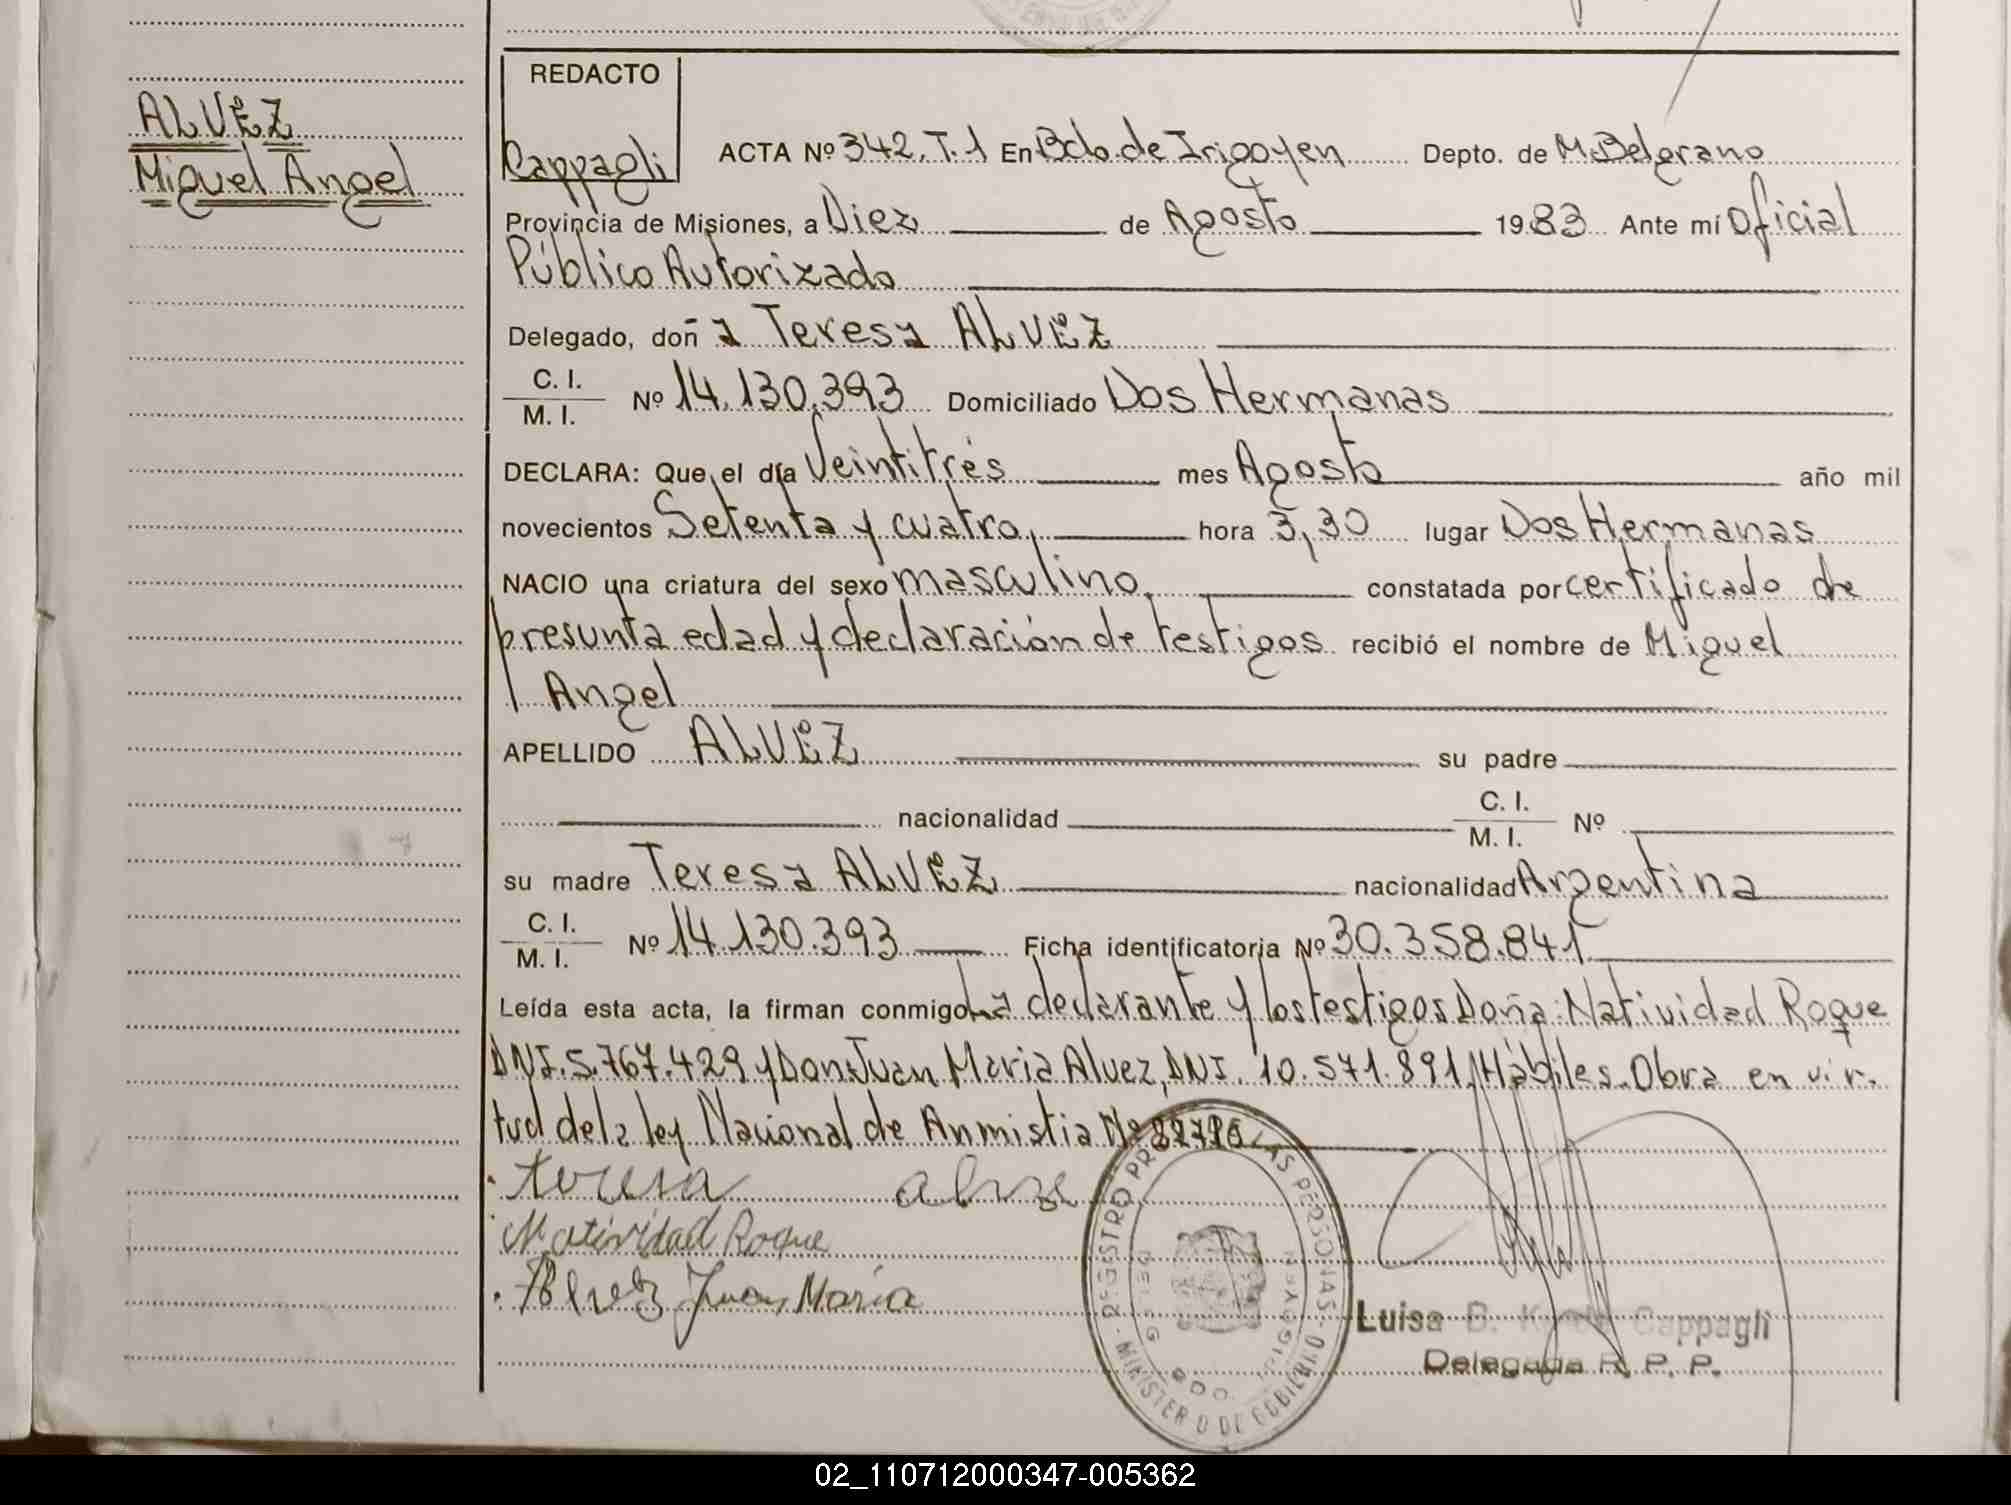 ALVEZ
Miguel Angel
REDACTO
Cappagli
ACTA Nº 342. T. 1 En Bdo. de Irigoyen Depto. de M. Belgrano
Provincia de Misiones, a Diez de Agosto 1983 Ante mí Oficial
Público Autorizado
Delegado, doña Teresa ALVEZ
C. I.
M. I. Nº 14.130.393 Domiciliado Dos Hermanas
DECLARA: Que el día Veintitrés mes Agosto año mil
novecientos Setenta y cuatro, hora 3,30 lugar Dos Hermanas
NACIO una criatura del sexo masculino, constatada por certificado de
presunta edad y declaración de testigos recibió el nombre de Miguel
Angel
APELLIDO ALVEZ su padre
nacionalidad C. I.
M. I. Nº
su madre Teresa ALVEZ nacionalidad Argentina
C. I.
M. I. Nº 14.130.393 Ficha identificatoria Nº 30.358.841
Leída esta acta, la firman conmigo La declarante y los testigos Doña: Natividad Roque
DNI. 5.767.429 y Don: Juan Maria Alvez, DNI. 10.571.891, Hábiles. Obra en vir-
tud de la ley Nacional de Anmistia Nº
teresa
Natividad Roque
Alvez Juan María
REGISTRO PROV. LAS PERSONAS - MINISTERIO DE GOBIERNO
DELEG. BDO. IRIGOYEN
Luisa B. Cappagli
Delegada R. P. P.
02_110712000347-005362